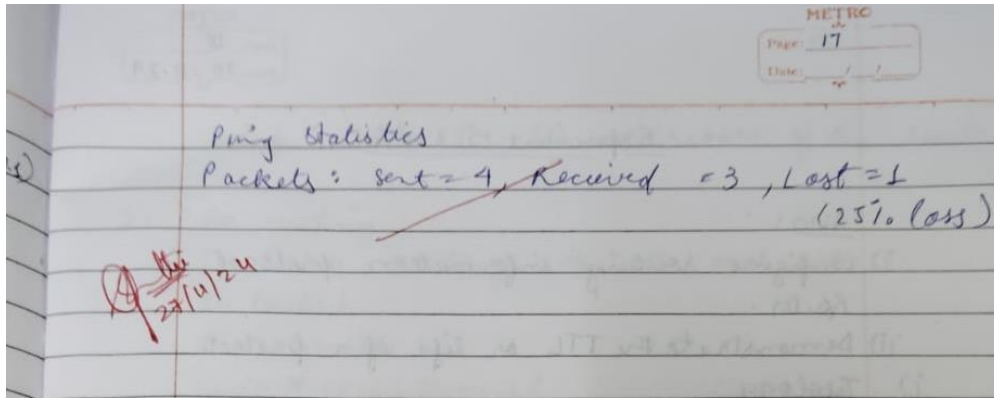 METRO
Page: 17
Date: / /
Ping statistics
Packets: sent = 4, Recieved = 3, Lost = 1
(25% loss)
27/11/24